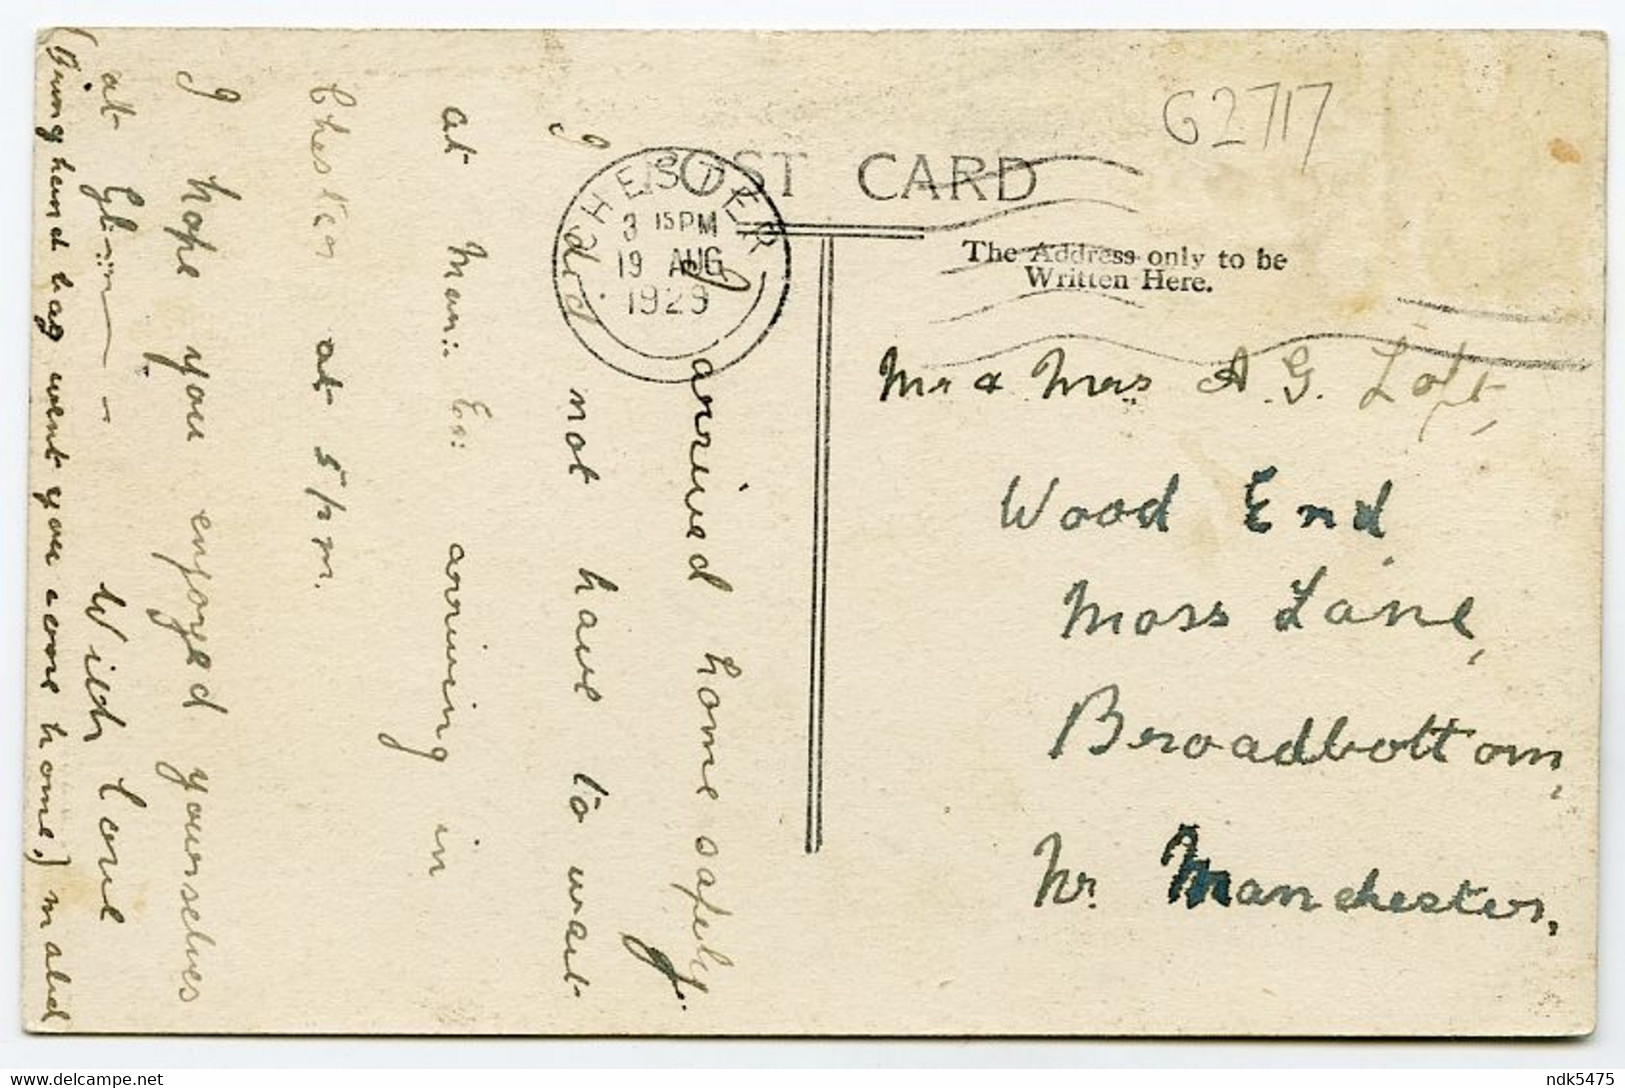 POST CARD
The Address only to be
Written Here.
G2717
CHESTER
3 15 PM
19 AUG
1929
Mr & Mrs A. G. Loft,
Wood End,
Moss Lane,
Broadbottom,
Nr. Manchester,
I arrived home safely.
I did not have to wait
at Man: Ex: arriving in
Chester at 5/pm.
I hope you enjoyed yourselves
at
With love
(Bring hand bag went you come home.)
ndk5475